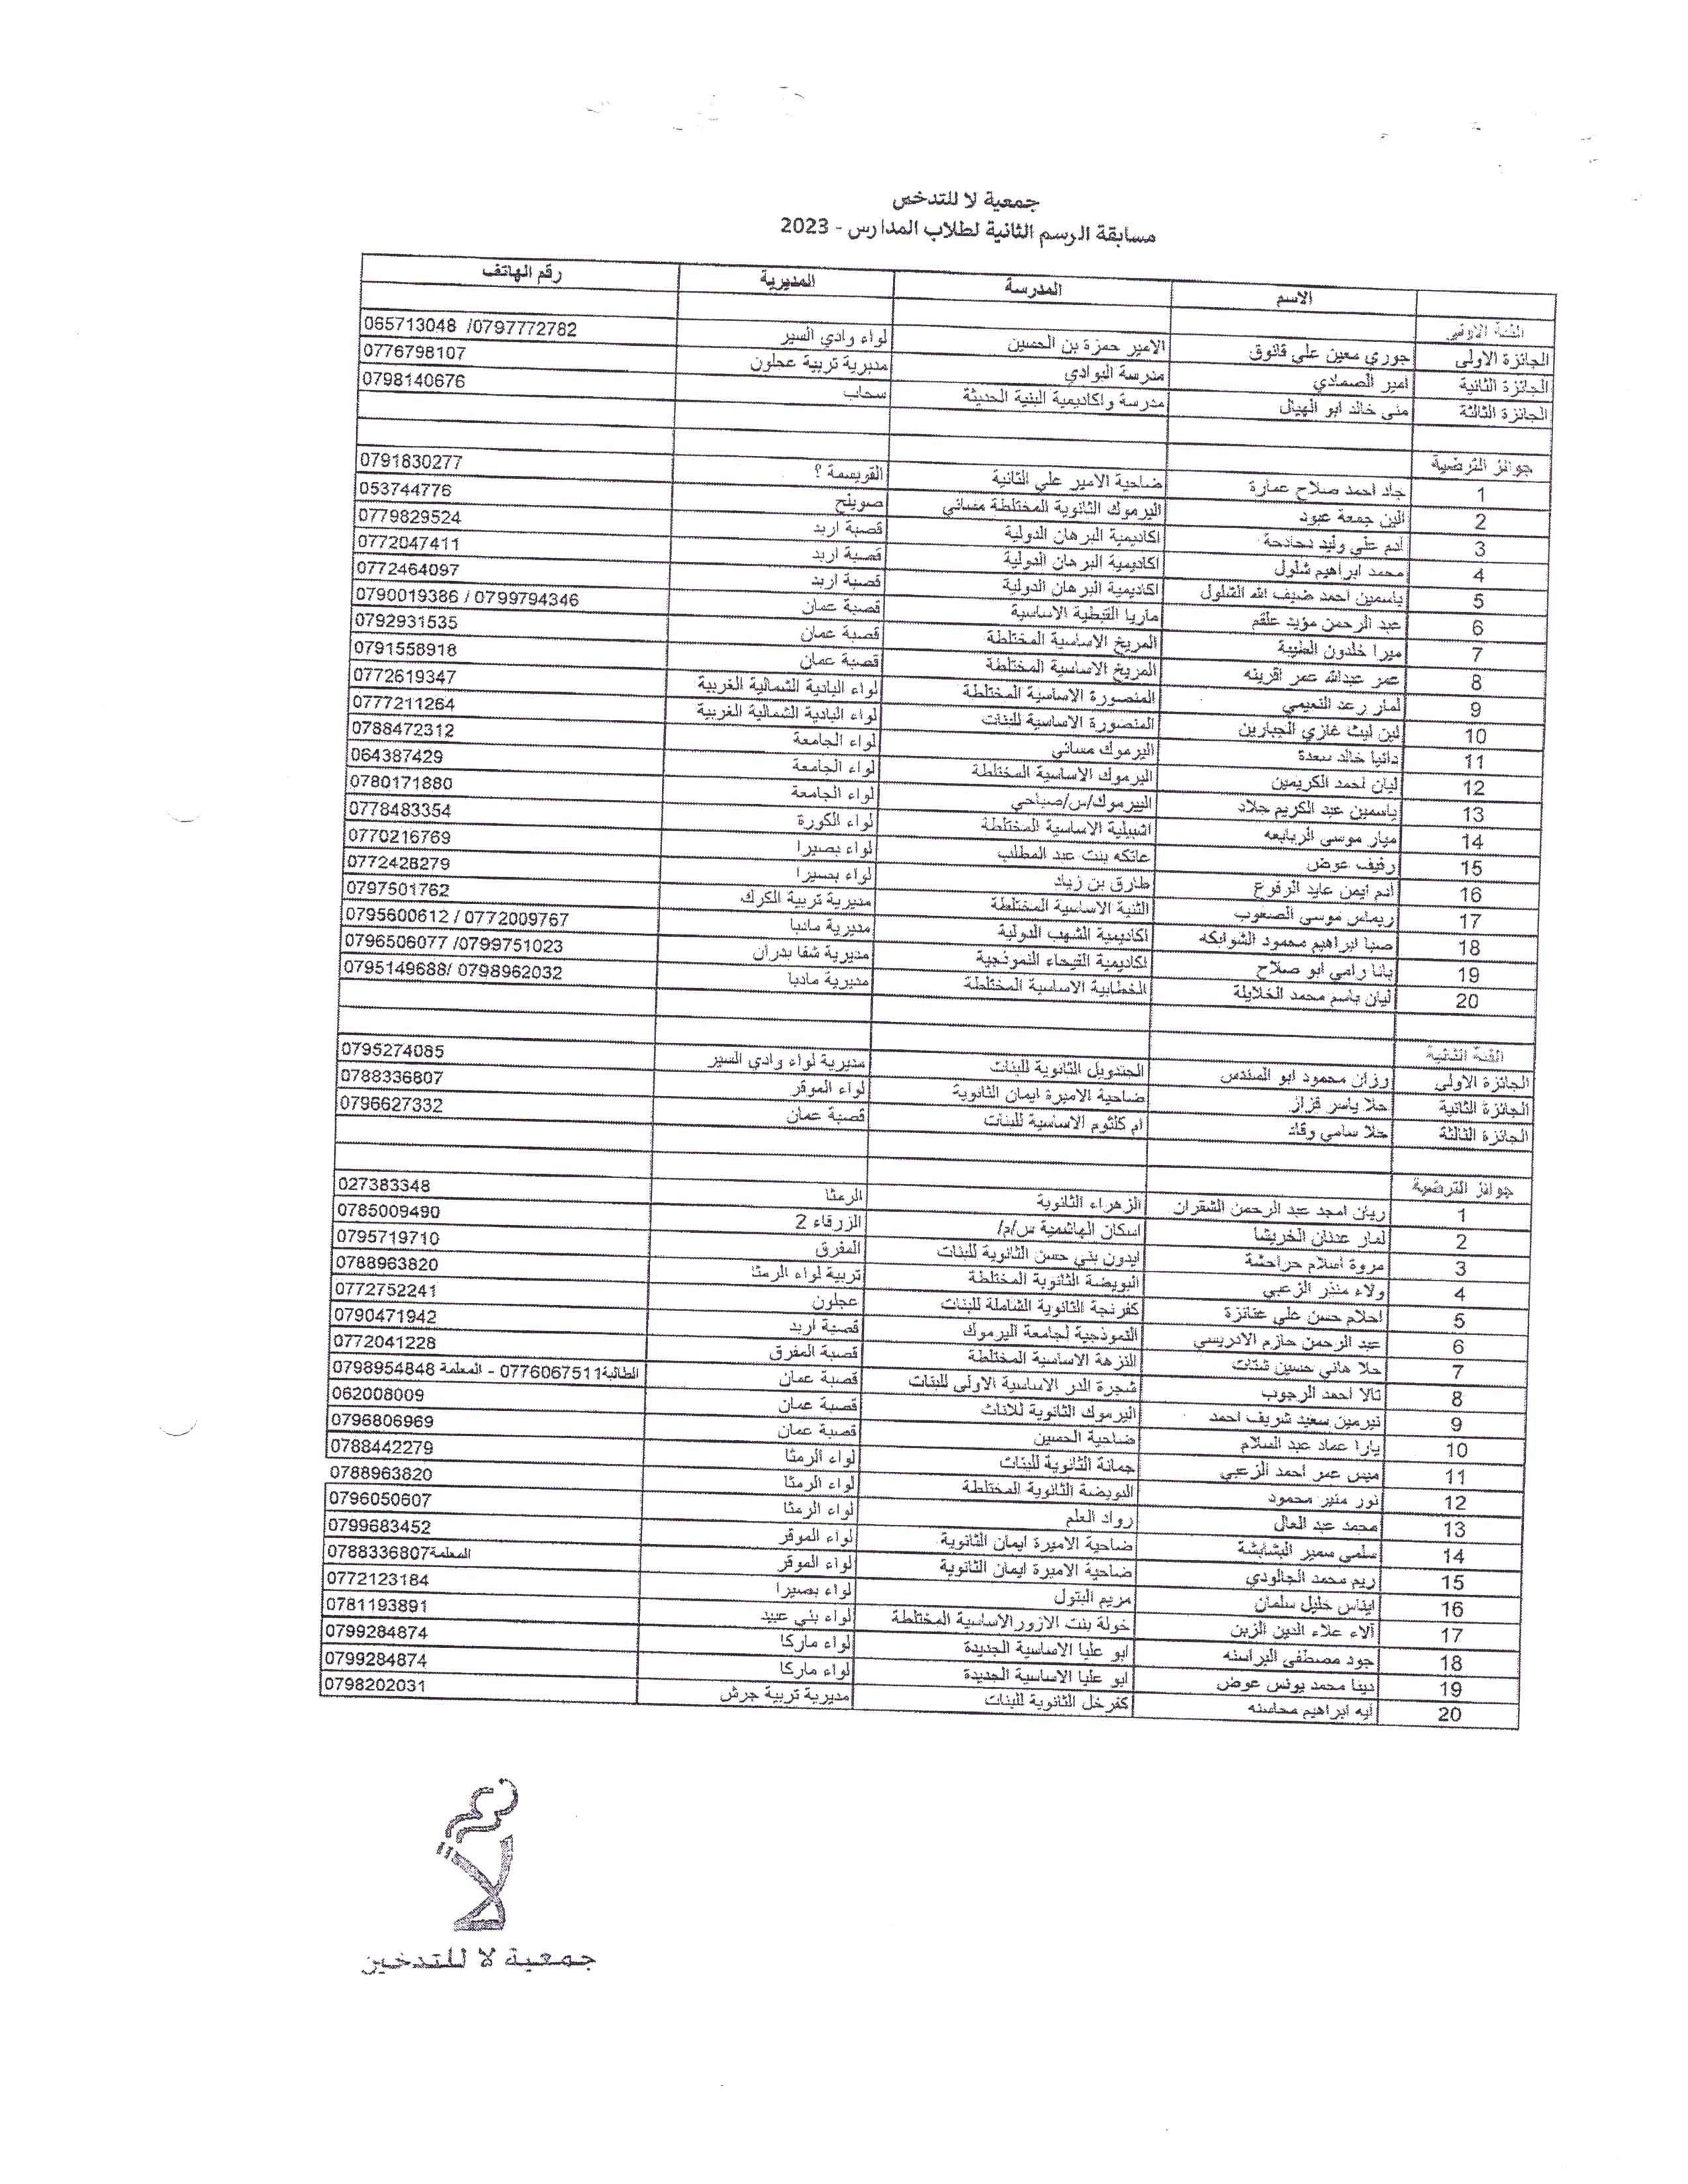 جمعية لا للتدخين
مسابقة الرسم الثانية لطلاب المدارس - 2023
الاسم المدرسة المديرية رقم الهاتف
الفئة الاولى
الجائزة الاولى جوري معين علي قانوق الامير حمزة بن الحسين لواء وادي السير 0797772782/ 065713048
الجائزة الثانية امير الصمادي مدرسة البوادي مديرية تربية عجلون 0776798107
الجائزة الثالثة منى خالد ابو الهيال مدرسة واكاديمية البنية الحديثة سحاب 0798140676
جوائز الترضية
1 جاد احمد صلاح عمارة ضاحية الامير علي الثانية القويسمة ؟ 0791830277
2 الين جمعة عبود اليرموك الثانوية المختلطة مسائي صويلح 053744776
3 ادم علي وليد دحادحة اكاديمية البرهان الدولية قصبة اربد 0779829524
4 محمد ابراهيم شلول اكاديمية البرهان الدولية قصبة اربد 0772047411
5 ياسمين احمد ضيف الله الشلول اكاديمية البرهان الدولية قصبة اربد 0772464097
6 عبد الرحمن مؤيد علقم ماريا القبطية الاساسية قصبة عمان 0799794346 / 0790019386
7 ميرا خلدون الطيبة المريخ الاساسية المختلطة قصبة عمان 0792931535
8 عمر عبدالله عمر اقرينه المريخ الاساسية المختلطة قصبة عمان 0791558918
9 لمار رعد النعيمي المنصورة الاساسية المختلطة لواء البادية الشمالية الغربية 0772619347
10 لين ليث غازي الجبارين المنصورة الاساسية للبنات لواء البادية الشمالية الغربية 0777211264
11 دانيا خالد سعدة اليرموك مسائي لواء الجامعة 0788472312
12 ليان احمد الكريمين اليرموك الاساسية المختلطة لواء الجامعة 064387429
13 ياسمين عبد الكريم جلاد الييرموك/س/صباحي لواء الجامعة 0780171880
14 ميار موسى الربابعه اشبيلية الاساسية المختلطة لواء الكورة 0778483354
15 رفيف عوض عاتكه بنت عبد المطلب لواء بصيرا 0770216769
16 ادم ايمن عايد الرفوع طارق بن زياد لواء بصيرا 0772428279
17 ريماس موسى الصعوب الثنية الاساسية المختلطة مديرية تربية الكرك 0797501762
18 صبا ابراهيم محمود الشوابكه اكاديمية الشهب الدولية مديرية مادبا 0772009767 / 0795600612
19 يانا رامي ابو صلاح اكاديمية الفيحاء النموذجية مديرية شفا بدران 0799751023/ 0796506077
20 ليان باسم محمد الخلايلة الخطابية الاساسية المختلطة مديرية مادبا 0798962032/ 0795149688
الفئة الثانية
الجائزة الاولى رزان محمود ابو السندس الجندويل الثانوية للبنات مديرية لواء وادي السير 0795274085
الجائزة الثانية حلا ياسر قزاز ضاحية الاميرة ايمان الثانوية لواء الموقر 0788336807
الجائزة الثالثة حلا سامي وقاد ام كلثوم الاساسية للبنات قصبة عمان 0796627332
جوائز الترضية
1 ريان امجد عبد الرحمن الشقران الزهراء الثانوية الرمثا 027383348
2 لمار عدنان الخريشا اسكان الهاشمية س/م/ الزرقاء 2 0785009490
3 مروة اسلام حراحشة ايدون بني حسن الثانوية للبنات المفرق 0795719710
4 ولاء منذر الزعبي البويضة الثانوية المختلطة تربية لواء الرمثا 0788963820
5 احلام حسن علي عنانزة كفرنجة الثانوية الشاملة للبنات عجلون 0772752241
6 عبد الرحمن حازم الادريسي النموذجية لجامعة اليرموك قصبة اربد 0790471942
7 حلا هاني حسين شتات النزهة الاساسية المختلطة قصبة المفرق 0772041228
8 تالا احمد الرجوب شجرة الدر الاساسية الاولى للبنات قصبة عمان الطالبة0776067511 - المعلمة 0798954848
9 نيرمين سعيد شريف احمد اليرموك الثانوية للاناث قصبة عمان 062008009
10 يارا عماد عبد السلام ضاحية الحسين قصبة عمان 0796806969
11 ميس عمر احمد الزعبي جمانة الثانوية للبنات لواء الرمثا 0788442279
12 نور منير محمود البويضة الثانوية المختلطة لواء الرمثا 0788963820
13 محمد عبد العال رواد العلم لواء الرمثا 0796050607
14 سلمى سمير البشابشة ضاحية الاميرة ايمان الثانوية لواء الموقر 0799683452
15 ريم محمد الجالودي ضاحية الاميرة ايمان الثانوية لواء الموقر المعلمة0788336807
16 ايناس خليل سلمان مريم البتول لواء بصيرا 0772123184
17 آلاء علاء الدين الزبن خولة بنت الازور الاساسية المختلطة لواء بني عبيد 0781193891
18 جود مصطفى البراسنه ابو عليا الاساسية الجديدة لواء ماركا 0799284874
19 دينا محمد يونس عوض ابو عليا الاساسية الجديدة لواء ماركا 0799284874
20 ايه ابراهيم محاسنه كفرخل الثانوية للبنات مديرية تربية جرش 0798202031
لا
جمعية لا للتدخين